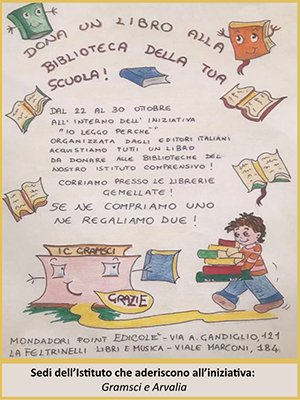 DONA UN LIBRO ALLA
BIBLIOTECA DELLA TUA
SCUOLA!
DAL 22 AL 30 OTTOBRE
ALL' INTERNO DELL' INIZIATIVA
"IO LEGGO PERCHÈ"
ORGANIZZATA DAGLI EDITORI ITALIANI
ACQUISTIAMO TUTTI UN LIBRO
DA DONARE ALLE BIBLIOTECHE DEL
NOSTRO ISTITUTO COMPRENSIVO!
CORRIAMO PRESSO LE LIBRERIE
GEMELLATE!
SE NE COMPRIAMO UNO
NE REGALIAMO DUE!
I C GRAMSCI
GRAZIE
MONDADORI POINT EDICOLÈ - VIA A. GANDIGLIO, 121
LA FELTRINELLI LIBRI E MUSICA - VIALE MARCONI, 184
Sedi dell'Istituto che aderiscono all'iniziativa:
Gramsci e Arvalia